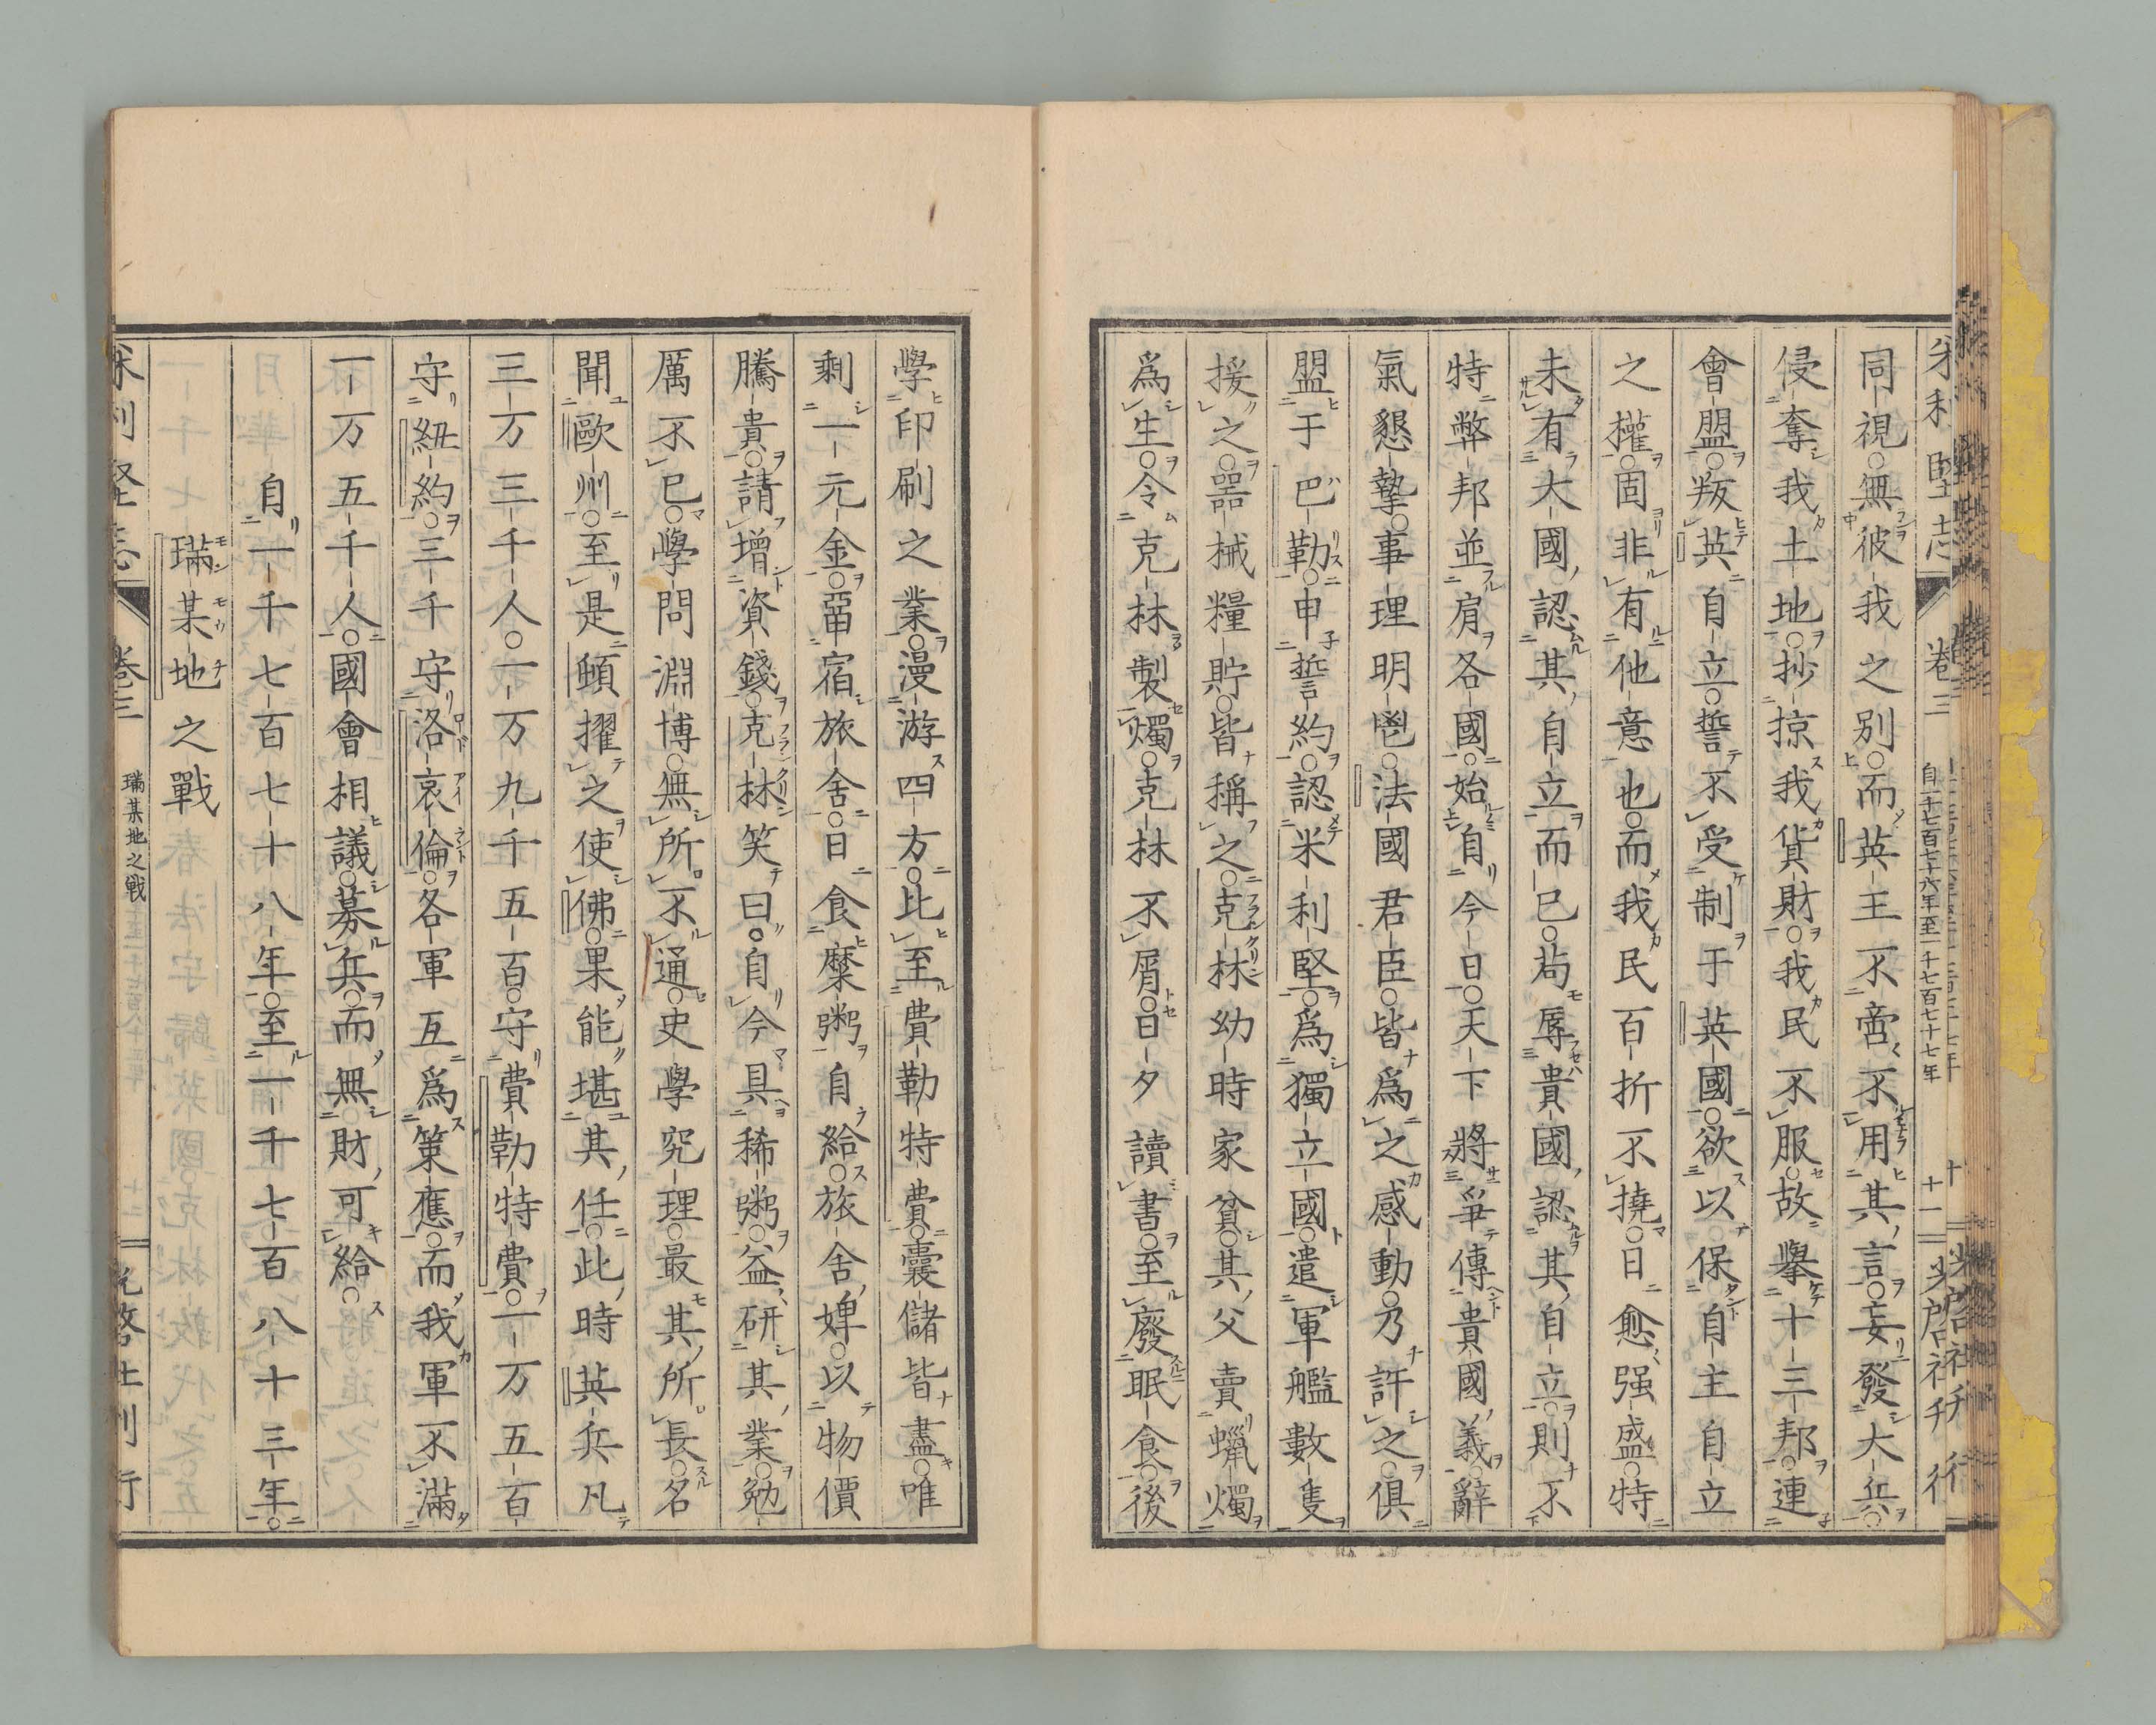 自一千七百七十六年至一千七百七十七年
卷三
十一
同視○無彼我之別○而英王不啻不用其言○妄發大兵○
侵奪我土地○抄掠我貨財○我民不服○故擧十三邦○連
會盟○叛英自立○誓不受制于英國○欲以保自主自立
之權○固非有他意也○而我民百折不撓○日愈强盛○特
未有大國認其自立而已○苟辱貴國認其自立○則不
特弊邦並肩各國○始自今日○天下將爭傳貴國義○辭
氣懇摯○事理明鬯○法國君臣○皆爲之感動○乃許之○俱
盟于巴勒○申誓約○認米利堅○爲獨立國○遣軍艦數隻
援之○器械糧貯○皆稱之○克林幼時家貧○其父賣蠟燭
爲生○令克林製燭○克林不屑○日夕讀書○至廢眠食○後
學印刷之業○漫游四方○比至費勒特費○囊儲皆盡○唯
剩一元金○畱宿旅舍○日食糜粥自給○旅舍婢○以物價
騰貴○請增資錢○克林笑曰○自今具稀粥○益研其業○勉
厲不已○學問淵博○無所不通○史學究理○最其所長○名
聞歐州○至是頓擢之使佛○果能堪其任○此時英兵凡
三万三千人○一万九千五百○守費勒特費○一万五百
守紐約○三千守洛哀倫○各軍互爲策應○而我軍不滿
一万五千人○國會相議○募兵○而無財可給○
自一千七百七十八年○至一千七百八十三年○
瑞某地之戰
卷三
瑞某地之戰